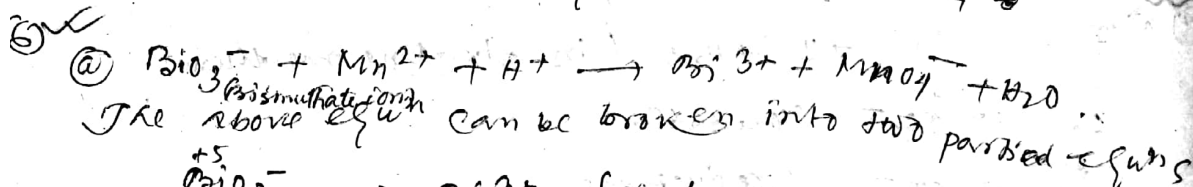 6
(a) BiO3^- + Mn^2+ + H^+ → Bi^3+ + MnO4^- + H2O
(Bismuthate ion)
The above equn can be broken into two partied equns
+5
BiO3^-